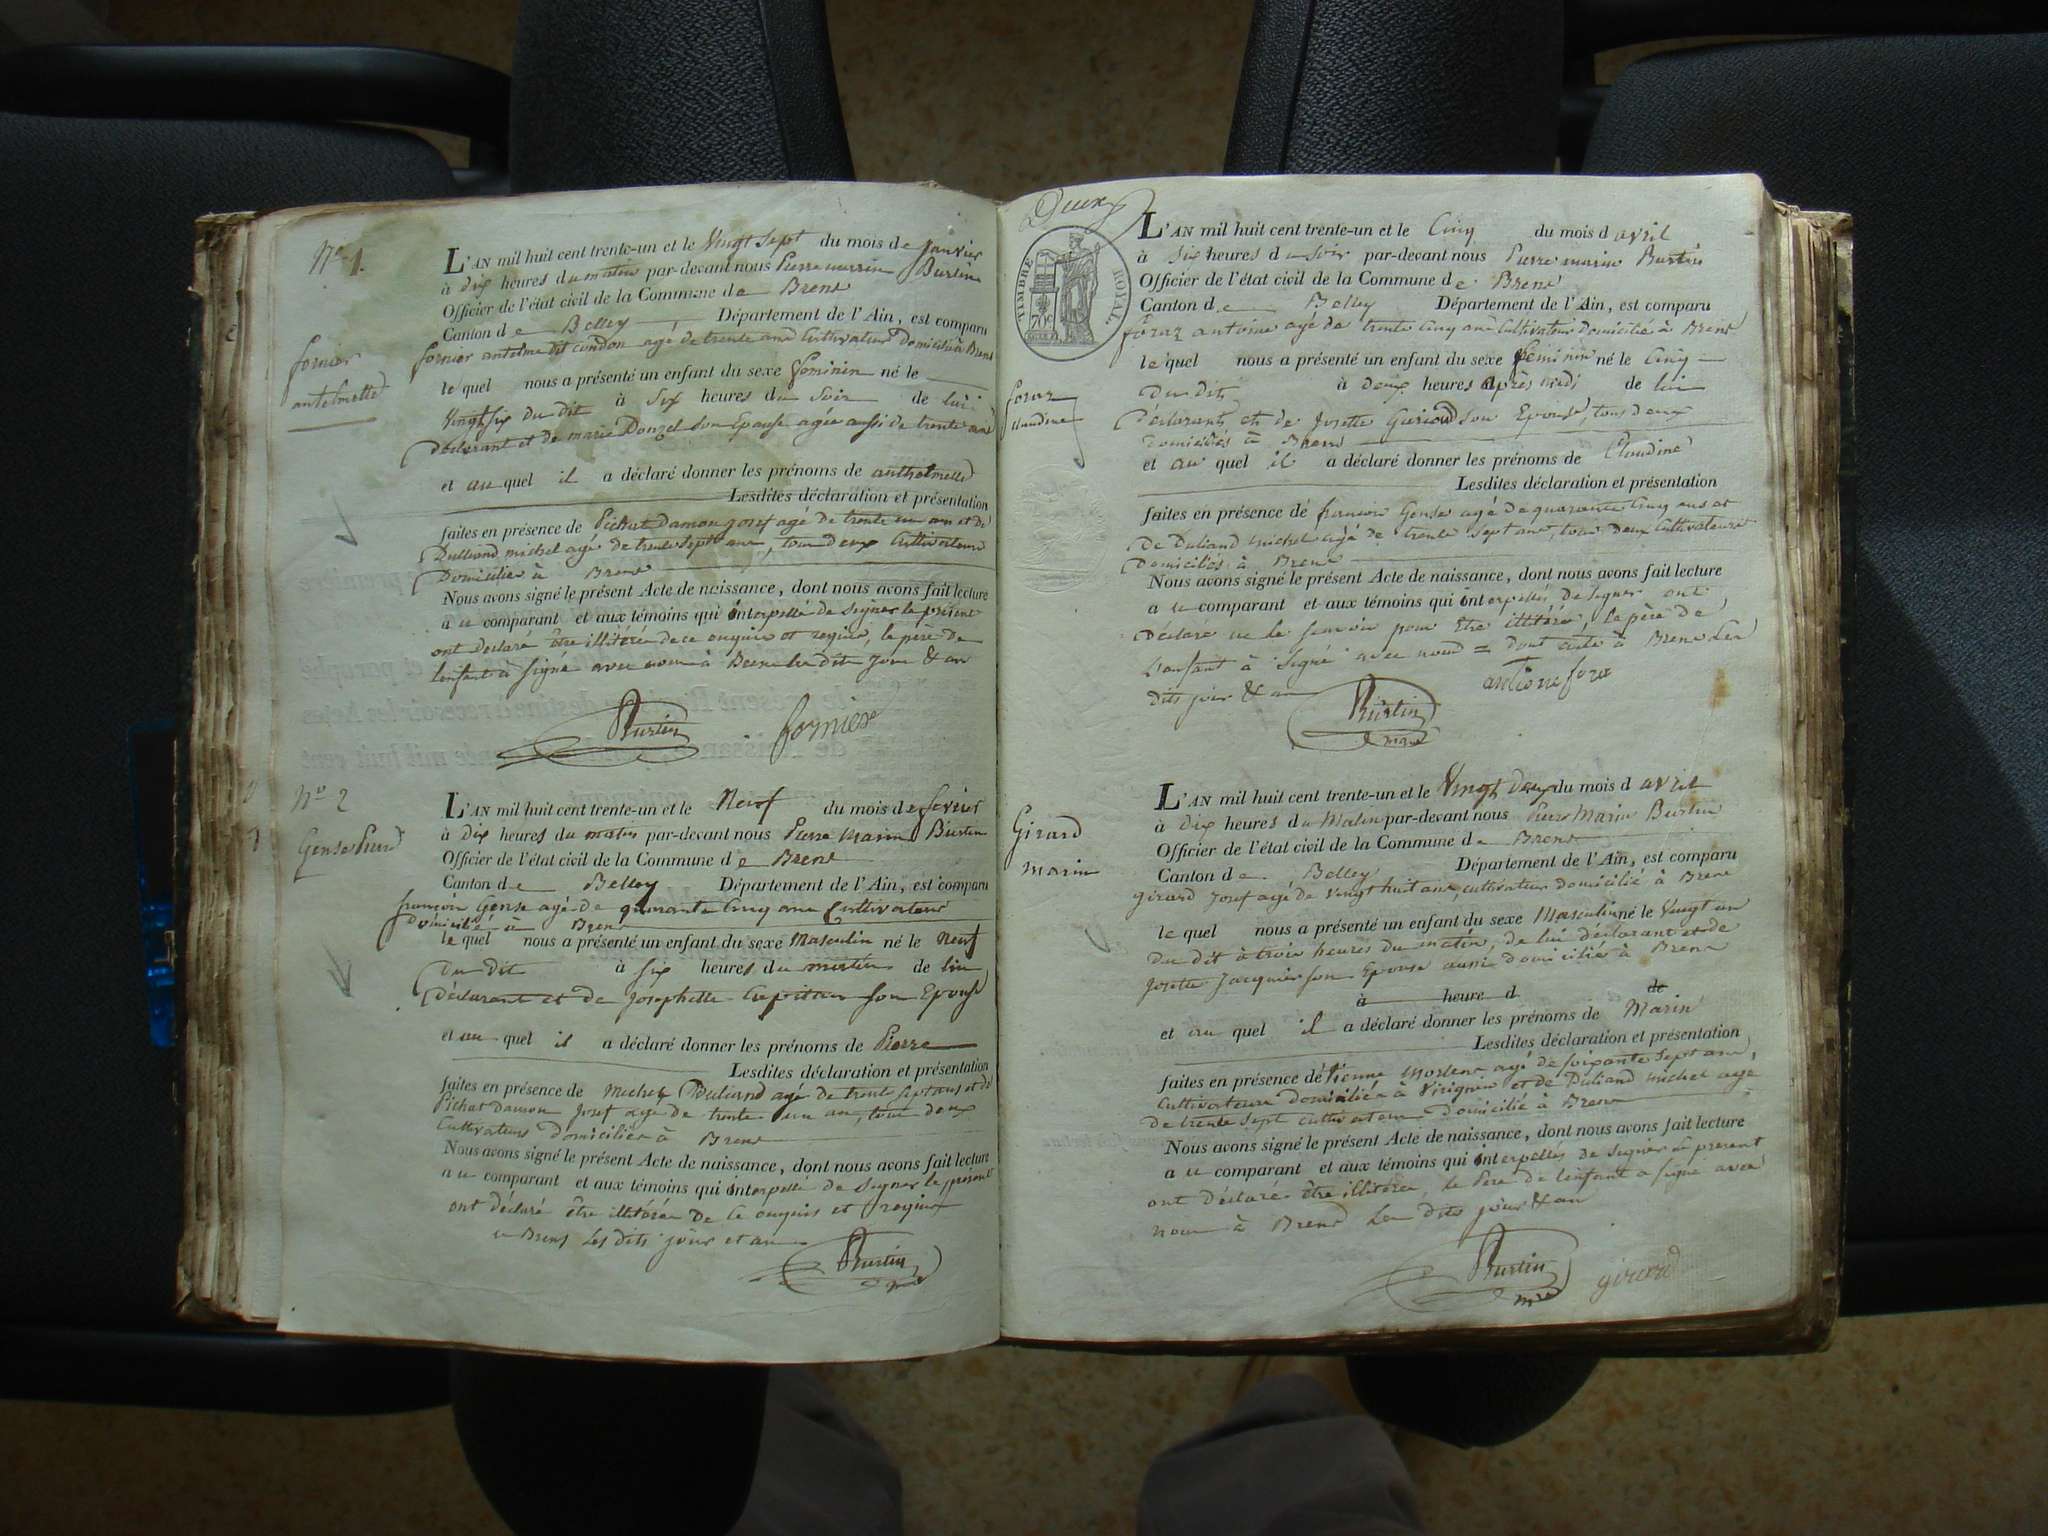 Nº 1.
fornier
antelmette
L'AN mil huit cent trente-un et le Vingt Sept du mois de Janvier
à dix heures du matin par-devant nous Pierre marin Burtin
Officier de l'état civil de la Commune de Brens
Canton de Belley Département de l'Ain, est comparu
fornier antelme dit condon agé de trente ans Cultivateur Domicilié à Brens
le quel nous a présenté un enfant du sexe feminin né le
Vingt six du dit à Six heures du Soir de lui
Déclarant et de marie Donzel son Epouse agée aussi de trente ans
et au quel il a déclaré donner les prénoms de anthelmette
Lesdites déclaration et présentation
faites en présence de Pichat Damon josef agé de trente un ans et de
Dulliand michel agé de trente Sept ans, tous deux Cultivateurs
Domiciliés à Brens
Nous avons signé le présent Acte de naissance, dont nous avons fait lecture
a u comparant et aux témoins qui interpellé de signer le présent
ont déclaré être illitéré de ce enquis et requis, le père de
l'enfant à signé avec nous à Brens les dits jour & an
Burtin fornier
Nº 2
Gense Pierre
L'AN mil huit cent trente-un et le Neuf du mois de fevrier
à dix heures du matin par-devant nous Pierre Marin Burtin
Officier de l'état civil de la Commune de Brens
Canton de Belley Département de l'Ain, est comparu
françois Gense agé de quarante Cinq ans Cultivateur
Domicilié à Brens
le quel nous a présenté un enfant du sexe Masculin né le Neuf
du dit à six heures du matin de lui
Déclarant et de Josephette son Epouse
et au quel il a déclaré donner les prénoms de Pierre
Lesdites déclaration et présentation
faites en présence de Michel Duliand agé de trente sept ans et de
Pichat Damon Josef agé de trente un an, tous deux
Cultivateurs domiciliés à Brens
Nous avons signé le présent Acte de naissance, dont nous avons fait lecture
a u comparant et aux témoins qui interpellé de signer le présent
ont déclaré être illitéré De Ce enquis et requis
à Brens Les dits jour et an
Burtin
mre
Deux
TIMBRE ROYAL
70 c
foraz
claudine
L'AN mil huit cent trente-un et le Cinq du mois d avril
à six heures du soir par-devant nous Pierre marin Burtin
Officier de l'état civil de la Commune de Brens
Canton de Belley Département de l'Ain, est comparu
foraz antoine agé de trente Cinq ans Cultivateur domicilié à Brens
le quel nous a présenté un enfant du sexe feminin né le Cinq
Du dit à deux heures après midi de lui
Déclarant et de Josette Guerioud son Epouse, tous deux
domiciliés à Brens
et au quel il a déclaré donner les prénoms de Claudine
Lesdites déclaration et présentation
faites en présence dé francois Gense agé de quarante Cinq ans et
De Duliand Michel agé de trente Sept ans, tous deux Cultivateurs
Domiciliés à Brens
Nous avons signé le présent Acte de naissance, dont nous avons fait lecture
a u comparant et aux témoins qui interpellés de signer ont
Déclaré ne le savoir pour être illitéré, le père de
L'enfant à signé avec nous = dont acte à Brens Les
dits jour & an
antione fora
Burtin
mre
Girard
marin
L'AN mil huit cent trente-un et le Vingt deux du mois d avril
à dix heures du Matin par-devant nous Pierre Marin Burtin
Officier de l'état civil de la Commune de Brens
Canton de Belley Département de l'Ain, est comparu
girard Josef agé de vingt huit ans, cultivateur domicilié à Brens
le quel nous a présenté un enfant du sexe Masculin né le Vingt un
du dit à trois heures du matin, de lui déclarant et de
Josette Jacquier son Epouse aussi domicilié à Brens
à heure d de
et au quel il a déclaré donner les prénoms de Marin
Lesdites déclaration et présentation
faites en présence dé agé de soixante Sept ans,
Cultivateur domicilié à Virignin et de Duliand michel agé
de trente sept cultivateur domicilié à Brens
Nous avons signé le présent Acte de naissance, dont nous avons fait lecture
a u comparant et aux témoins qui interpellés de signer le présent
ont déclaré être illitéré, le Père de lenfant a signé avec
nous à Brens Les dits jour & an
Burtin girard
mre